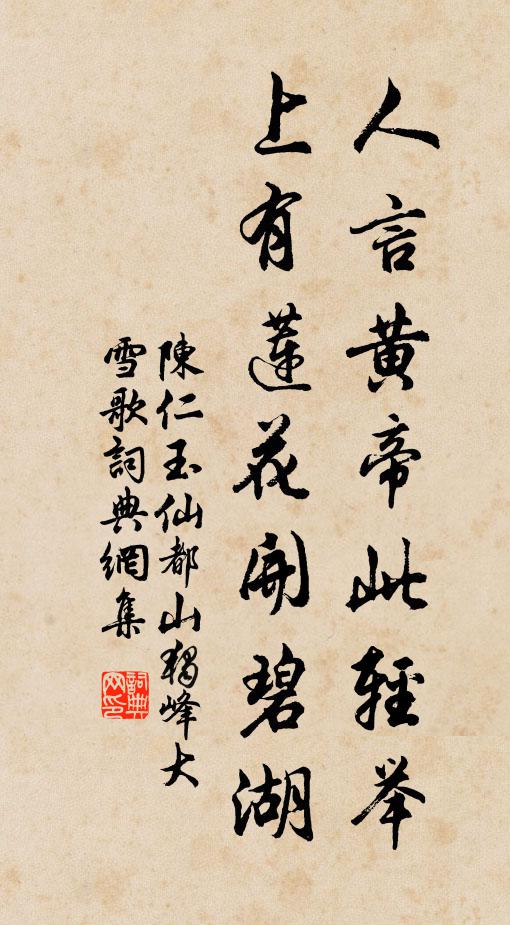 人言黃帝此輕举
上有蓮花開碧湖
陳仁玉仙都山獨峰大
雪歌詞典網集
詞典网印